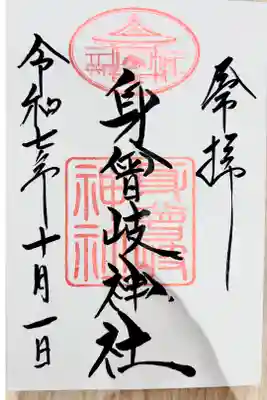 奉拝
身曾岐神社
令和七年十月一日
身曾岐神社